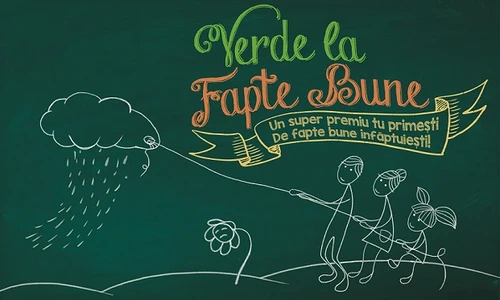 Verde la
Fapte Bune
Un super premiu tu primești
De fapte bune înfăptuiești!